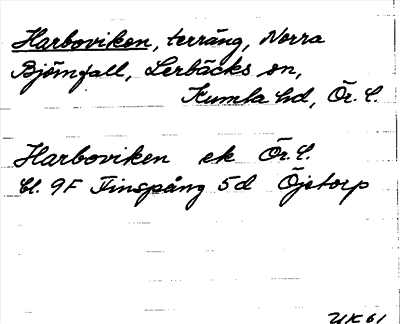 Harboviken, terräng, Norra
Björnfall, Lerbäcks sn,
Kumla hd, Ör. l.
Harboviken ek Ör. l.
bl. 9F Finspång 5d Öjetorp
UK 61